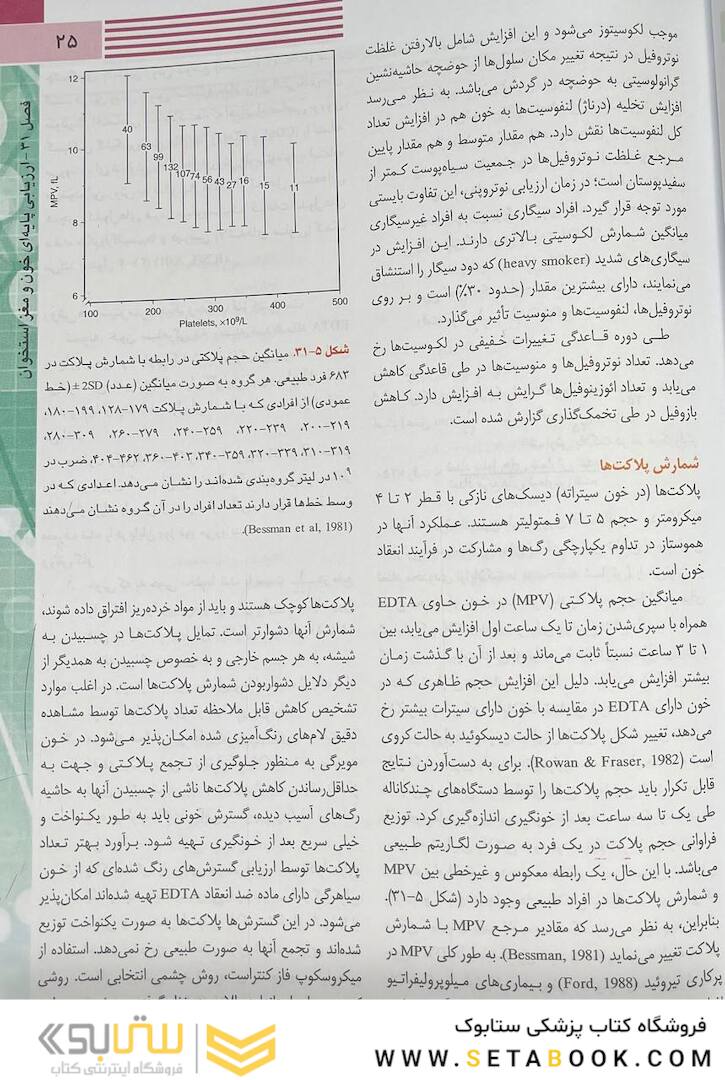 ۲۵
فصل ۳۱ - ارزیابی پایه‌ای خون و مغز استخوان
موجب لکوسیتوز می‌شود و این افزایش شامل بالارفتن غلظت
نوتروفیل در نتیجه تغییر مکان سلول‌ها از حوضچه حاشیه‌نشین
گرانولوسیتی به حوضچه در گردش می‌باشد. به نظر می‌رسد
افزایش تخلیه (درناژ) لنفوسیت‌ها به خون هم در افزایش تعداد
کل لنفوسیت‌ها نقش دارد. هم مقدار متوسط و هم مقدار پایین
مرجع غلظت نوتروفیل‌ها در جمعیت سیاه‌پوست کمتر از
سفیدپوستان است؛ در زمان ارزیابی نوتروپنی، این تفاوت بایستی
مورد توجه قرار گیرد. افراد سیگاری نسبت به افراد غیرسیگاری
میانگین شمارش لکوسیتی بالاتری دارند. این افزایش در
سیگاری‌های شدید (heavy smoker) که دود سیگار را استنشاق
می‌نمایند، دارای بیشترین مقدار (حدود ۳۰٪) است و بر روی
نوتروفیل‌ها، لنفوسیت‌ها و منوسیت تأثیر می‌گذارد.
طی دوره قاعدگی تغییرات خفیفی در لکوسیت‌ها رخ
می‌دهد. تعداد نوتروفیل‌ها و منوسیت‌ها در طی قاعدگی کاهش
می‌یابد و تعداد ائوزینوفیل‌ها گرایش به افزایش دارد. کاهش
بازوفیل در طی تخمک‌گذاری گزارش شده است.
شمارش پلاکت‌ها
پلاکت‌ها (در خون سیتراته) دیسک‌های نازکی با قطر ۲ تا ۴
میکرومتر و حجم ۵ تا ۷ فمتولیتر هستند. عملکرد آنها در
هموستاز در تداوم یکپارچگی رگ‌ها و مشارکت در فرآیند انعقاد
خون است.
میانگین حجم پلاکتی (MPV) در خون حاوی EDTA
همراه با سپری‌شدن زمان تا یک ساعت اول افزایش می‌یابد، بین
۱ تا ۳ ساعت نسبتاً ثابت می‌ماند و بعد از آن با گذشت زمان
بیشتر افزایش می‌یابد. دلیل این افزایش حجم ظاهری که در
خون دارای EDTA در مقایسه با خون دارای سیترات بیشتر رخ
می‌دهد، تغییر شکل پلاکت‌ها از حالت دیسکوئید به حالت کروی
است (Rowan & Fraser, 1982). برای به دست‌آوردن نتایج
قابل تکرار باید حجم پلاکت‌ها را توسط دستگاه‌های چندکاناله
طی یک تا سه ساعت بعد از خونگیری اندازه‌گیری کرد. توزیع
فراوانی حجم پلاکت در یک فرد به صورت لگاریتم طبیعی
می‌باشد. با این حال، یک رابطه معکوس و غیرخطی بین MPV
و شمارش پلاکت‌ها در افراد طبیعی وجود دارد (شکل ۵-۳۱).
بنابراین، به نظر می‌رسد که مقادیر مرجع MPV با شمارش
پلاکت تغییر می‌نماید (Bessman, 1981). به طور کلی MPV در
پرکاری تیروئید (Ford, 1988) و بیماری‌های میلوپرولیفراتیو
MPV, fL
12
10
8
6
40 63 99 132 107 74 56 43 27 16 15 11
100 200 300 400 500
Platelets, ×10⁹/L
شکل ۵-۳۱. میانگین حجم پلاکتی در رابطه با شمارش پلاکت در
۶۸۳ فرد طبیعی. هر گروه به صورت میانگین (عدد) ±2SD (خط
عمودی) از افرادی که با شمارش پلاکت ۱۷۹-۱۲۸، ۱۹۹-۱۸۰،
۲۱۹-۲۰۰، ۲۳۹-۲۲۰، ۲۵۹-۲۴۰، ۲۷۹-۲۶۰، ۳۰۹-۲۸۰،
۳۱۹-۳۱۰، ۳۳۹-۳۲۰، ۳۵۹-۳۴۰، ۴۰۳-۳۶۰، ۴۶۲-۴۰۴، ضرب در
۱۰⁹ در لیتر گروه‌بندی شده‌اند را نشان می‌دهد. اعدادی که در
وسط خط‌ها قرار دارند تعداد افراد را در آن گروه نشان می‌دهند
(Bessman et al, 1981).
پلاکت‌ها کوچک هستند و باید از مواد خرده‌ریز افتراق داده شوند،
شمارش آنها دشوارتر است. تمایل پلاکت‌ها در چسبیدن به
شیشه، به هر جسم خارجی و به خصوص چسبیدن به همدیگر از
دیگر دلایل دشواربودن شمارش پلاکت‌ها است. در اغلب موارد
تشخیص کاهش قابل ملاحظه تعداد پلاکت‌ها توسط مشاهده
دقیق لام‌های رنگ‌آمیزی شده امکان‌پذیر می‌شود. در خون
مویرگی به منظور جلوگیری از تجمع پلاکتی و جهت به
حداقل‌رساندن کاهش پلاکت‌ها ناشی از چسبیدن آنها به حاشیه
رگ‌های آسیب دیده، گسترش خونی باید به طور یکنواخت و
خیلی سریع بعد از خونگیری تهیه شود. برآورد بهتر تعداد
پلاکت‌ها توسط ارزیابی گسترش‌های رنگ شده‌ای که از خون
سیاهرگی دارای ماده ضد انعقاد EDTA تهیه شده‌اند امکان‌پذیر
می‌شود. در این گسترش‌ها پلاکت‌ها به صورت یکنواخت توزیع
شده‌اند و تجمع آنها به صورت طبیعی رخ نمی‌دهد. استفاده از
میکروسکوپ فاز کنتراست، روش چشمی انتخابی است. روشی
فروشگاه کتاب پزشکی ستابوک
WWW.SETABOOK.COM
ستابوک
فروشگاه اینترنتی کتاب